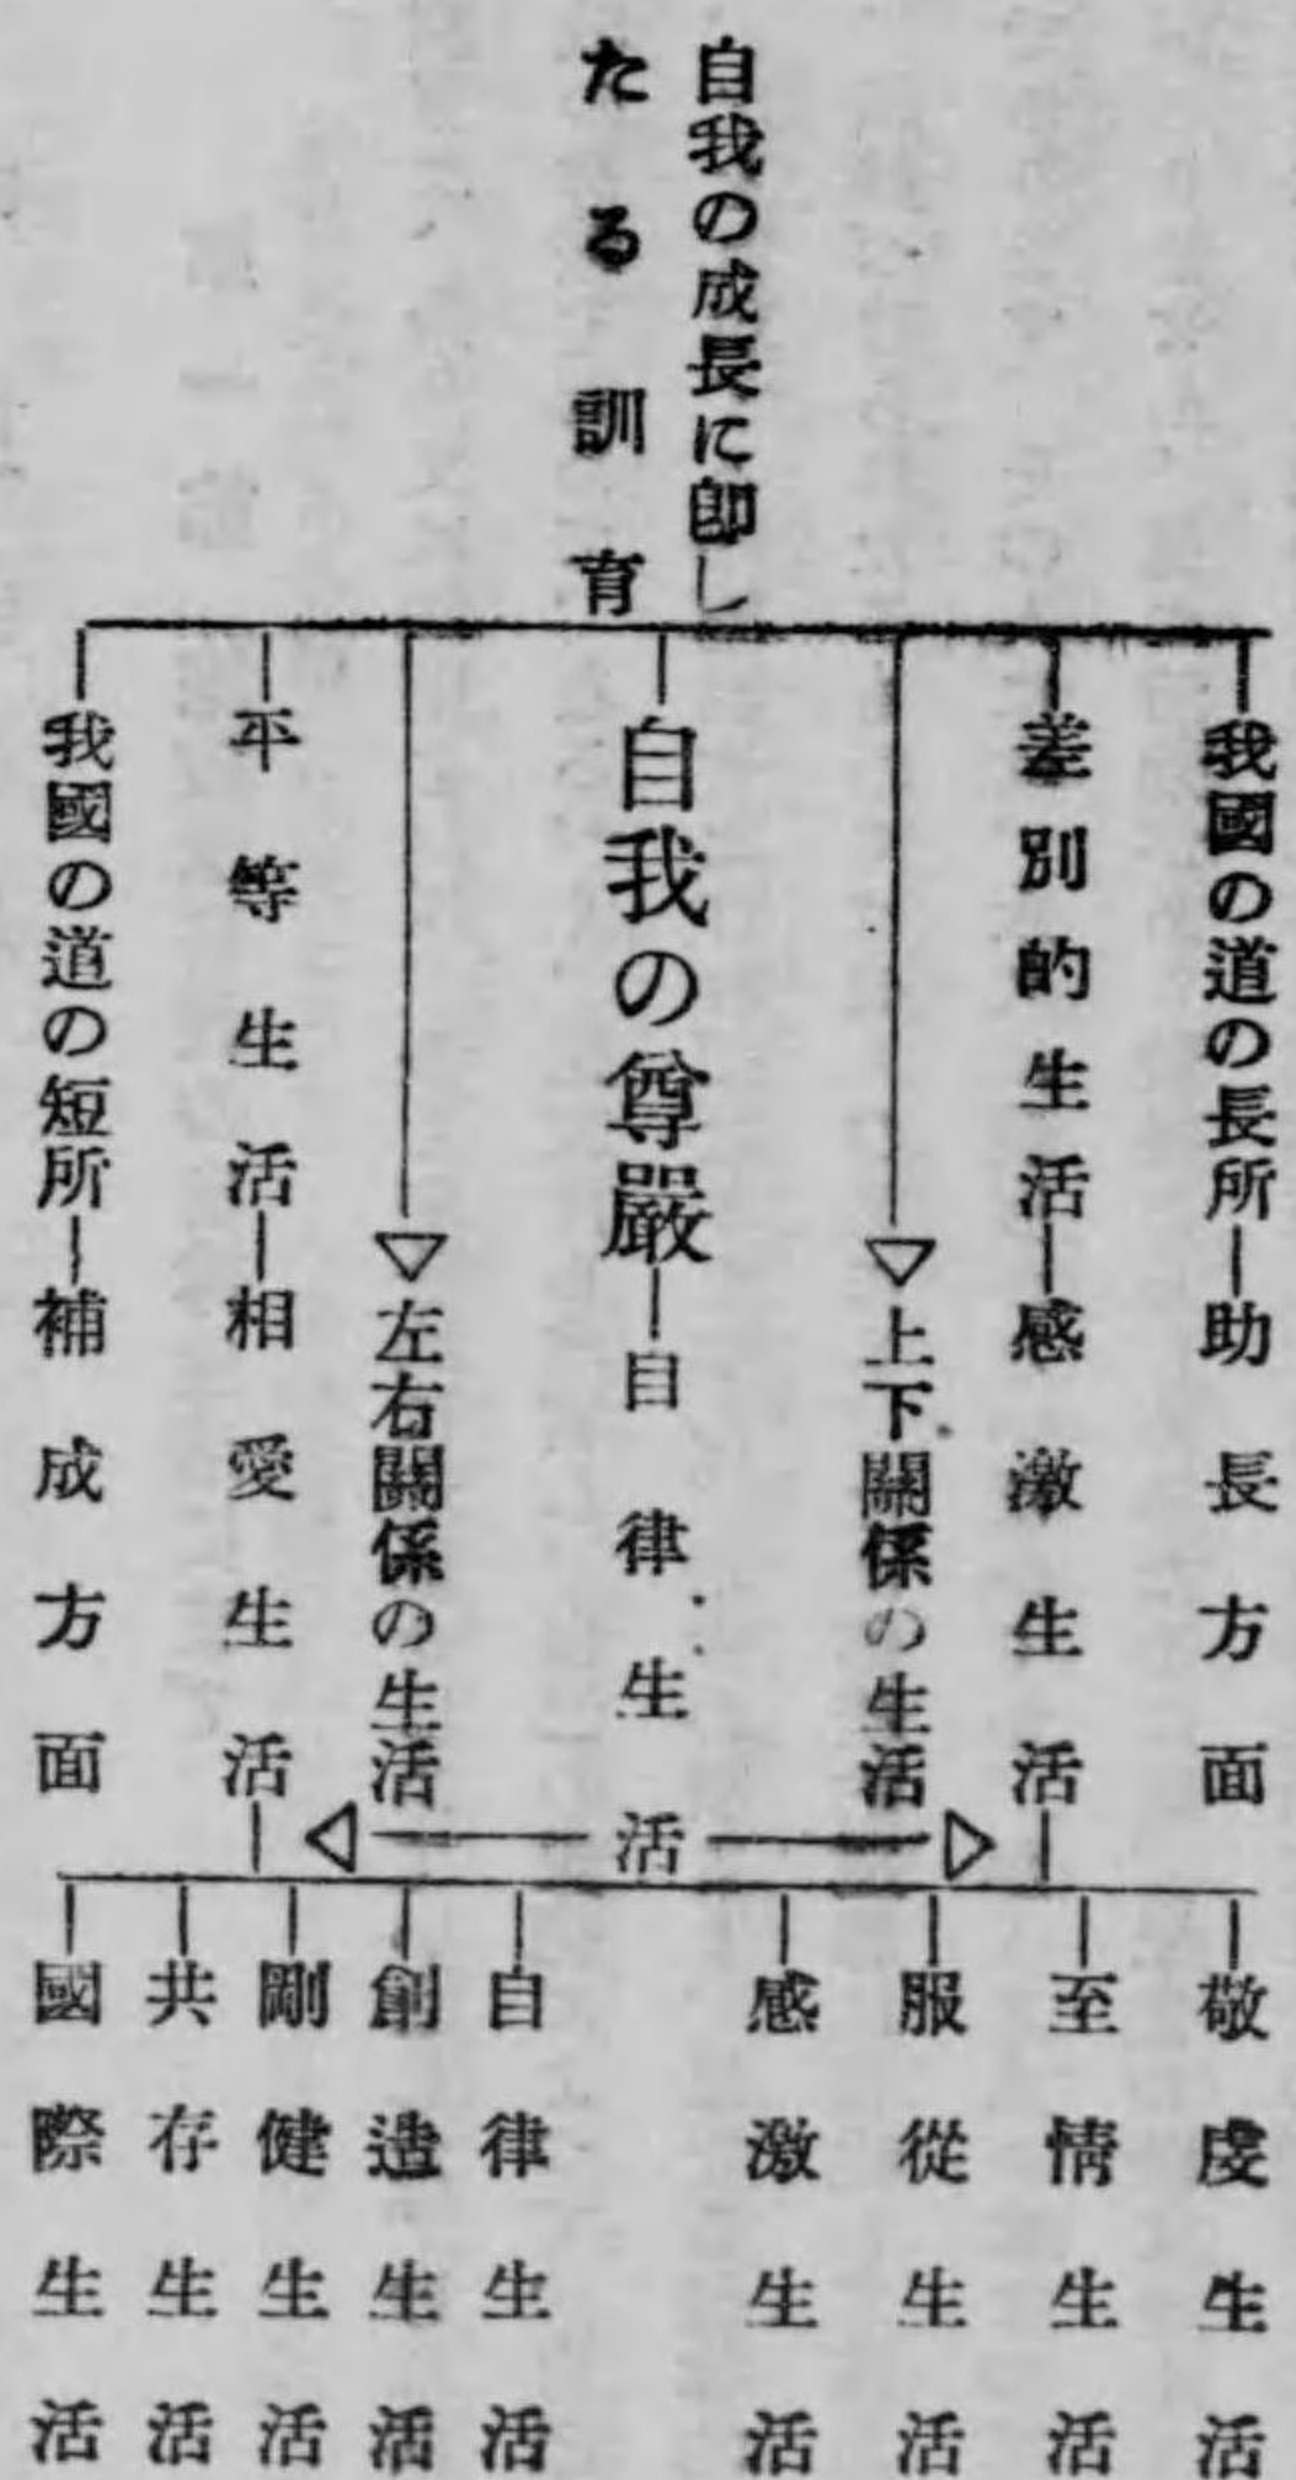 自我の成長に卽し
たる訓育
我國の道の長所―助長方面
差別的生活―感激生活
上下關係の生活
自我の尊嚴―自律生活
左右關係の生活
平等生活―相愛生活
我國の道の短所―補成方面
敬虔生活
至情生活
服從生活
感激生活
自律生活
創造生活
剛健生活
共存生活
國際生活